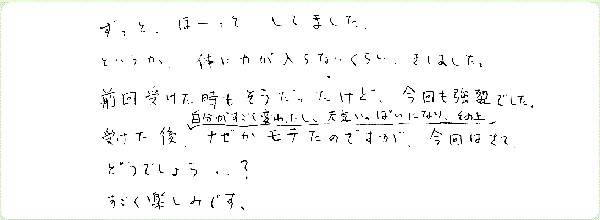 ずっと、ほーっと してました。
というか、体に力が入らないくらい、きました。
前回受けた時もそうだったけど、今回も強裂でした。
自分がすごく変わったし、元気いっぱいになり、その上、
受けた後、ナゼかモテたのですが、今回はさて
どうでしょう、、?
すごく楽しみです。